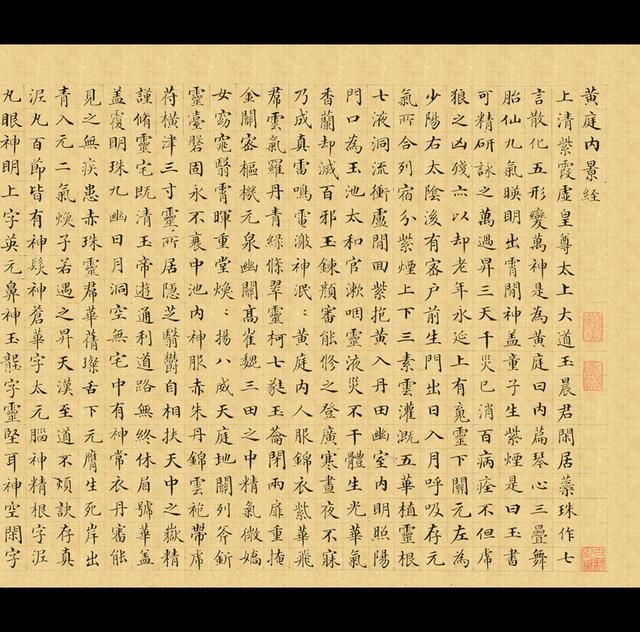 黃庭內景経
上清紫霞虛皇尊太上大道玉晨君閑居蘂珠作七
言散化五形變萬神是為黃庭曰內篇琴心三疊舞
胎仙九氣暎明出霄間神盖童子生紫煙是曰玉書
可精研詠之萬過昇三天千災已消百病痊不但虎
狼之凶殘亦以却老年永延上有䰟靈下關元左為
少陽右太陰後有密户前生門出日入月呼吸存元
氣所合列宿分紫煙上下三素雲灌溉五華植靈根
七液洞流衝廬間回紫抱黃入丹田幽室內明照陽
門口為玉池太和官漱咽靈液災不干體生光華氣
香蘭却滅百邪玉鍊顏審能修之登廣寒晝夜不寐
乃成真雷鳴電激神泯:黃庭內人服錦衣紫華飛
帬雲氣羅丹青綠條翠靈柯七蕤玉籥閉兩扉重掩
金關密樞機元泉幽關高崔巍三田之中精氣微嬌
女窈窕翳霄暉重堂煥:揚八威天庭地關列斧釿
靈臺磐固永不衰中池內神服赤朱丹錦雲袍帶虎
苻橫津三寸靈所居隱芝翳鬱自相扶天中之嶽精
謹脩靈宅既清玉帝遊通利道路無終休眉號華蓋
蓋覆明珠九幽日月洞空無宅中有神常衣丹審能
見之無疾患赤珠靈帬華蒨璨舌下元膺生死岸出
青入元二氣煥子若遇之昇天漢至道不煩訣存真
泥丸百節皆有神髮神蒼華字太元腦神精根字泥
丸眼神明上字英元鼻神玉壠字靈堅耳神空閑字